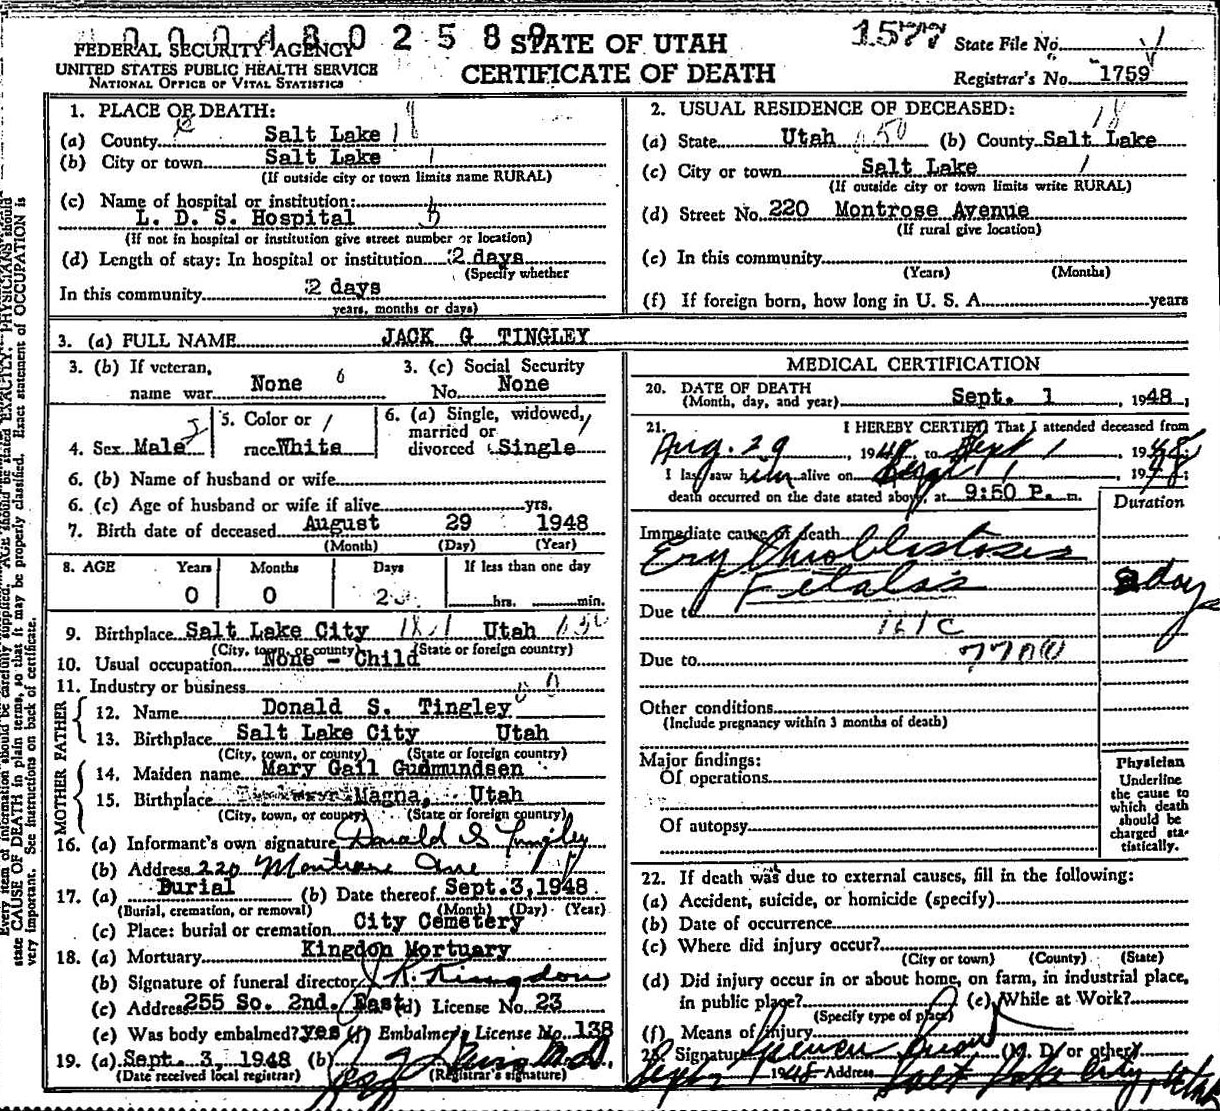 0 0 0 4 8 0 2 5 8 9
FEDERAL SECURITY AGENCY
UNITED STATES PUBLIC HEALTH SERVICE
NATIONAL OFFICE OF VITAL STATISTICS
STATE OF UTAH
CERTIFICATE OF DEATH
1577 State File No.
Registrar's No. 1759
1. PLACE OF DEATH:
(a) County Salt Lake 18
(b) City or town Salt Lake 1
(If outside city or town limits name RURAL)
(c) Name of hospital or institution:
L. D. S. Hospital
(If not in hospital or institution give street number or location)
(d) Length of stay: In hospital or institution 2 days
(Specify whether
In this community 2 days
years, months or days)
2. USUAL RESIDENCE OF DECEASED:
18
(a) State Utah 050 (b) County Salt Lake
(c) City or town Salt Lake 1
(If outside city or town limits write RURAL)
(d) Street No. 220 Montrose Avenue
(If rural give location)
(e) In this community
(Years) (Months)
(f) If foreign born, how long in U. S. A. years
3. (a) FULL NAME JACK G TINGLEY
3. (b) If veteran,
name war None 6
3. (c) Social Security
No. None
4. Sex Male
5. Color or
race White
6. (a) Single, widowed,
married or
divorced Single
6. (b) Name of husband or wife
6. (c) Age of husband or wife if alive yrs.
7. Birth date of deceased August 29 1948
(Month) (Day) (Year)
8. AGE Years Months Days If less than one day
0 0 2 hrs. min.
9. Birthplace Salt Lake City Utah
(City, town, or county) (State or foreign country)
10. Usual occupation None - Child
11. Industry or business
FATHER
12. Name Donald S. Tingley
13. Birthplace Salt Lake City Utah
(City, town, or county) (State or foreign country)
MOTHER
14. Maiden name Mary Gail Gudmundsen
15. Birthplace Magna, Utah
(City, town, or county) (State or foreign country)
16. (a) Informant's own signature Donald S Tingley
(b) Address 220 Montrose Ave
17. (a) Burial (b) Date thereof Sept. 3, 1948
(Burial, cremation, or removal) (Month) (Day) (Year)
(c) Place: burial or cremation City Cemetery
18. (a) Mortuary Kingdon Mortuary
(b) Signature of funeral director Kingdon
(c) Address 255 So. 2nd. East (d) License No. 23
(e) Was body embalmed? yes (f) Embalmer's License No. 138
19. (a) Sept. 3, 1948 (b) M.D.
(Date received local registrar) (Registrar's signature)
MEDICAL CERTIFICATION
20. DATE OF DEATH
(Month, day, and year) Sept. 1, 1948
21. I HEREBY CERTIFY That I attended deceased from
Aug. 29, 1948, to Sept 1, 1948
I last saw him alive on Sept 1, 1948;
death occurred on the date stated above, at 9:50 P. m.
Duration
Immediate cause of death
Erythroblistosis
Fetalas 2 days
Due to
161C
Due to 7700
Other conditions
(Include pregnancy within 3 months of death)
Major findings:
Of operations
Of autopsy
Physician
Underline
the cause to
which death
should be
charged sta-
tistically.
22. If death was due to external causes, fill in the following:
(a) Accident, suicide, or homicide (specify)
(b) Date of occurrence
(c) Where did injury occur?
(City or town) (County) (State)
(d) Did injury occur in or about home, on farm, in industrial place,
in public place? (e) While at Work?
(Specify type of place)
(f) Means of injury
23. Signature Spencer (M. D. or other)
Sept 1948 Address Salt Lake City, Utah
Every item of information should be carefully supplied. AGE should be stated EXACTLY. PHYSICIANS should
state CAUSE OF DEATH in plain terms, so that it may be properly classified. Exact statement of OCCUPATION is
very important. See instructions on back of certificate.